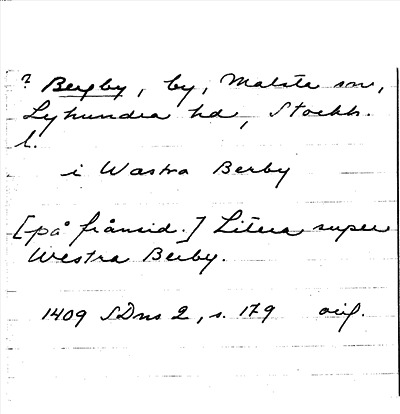 ? Bergby, by, Malsta sn,
Lyhundra hd, Stockh.
l.
i Wæstra Berby
[på frånsid.] Litera super
Westra Berby.
1409 SDns 2, s. 179 orig.